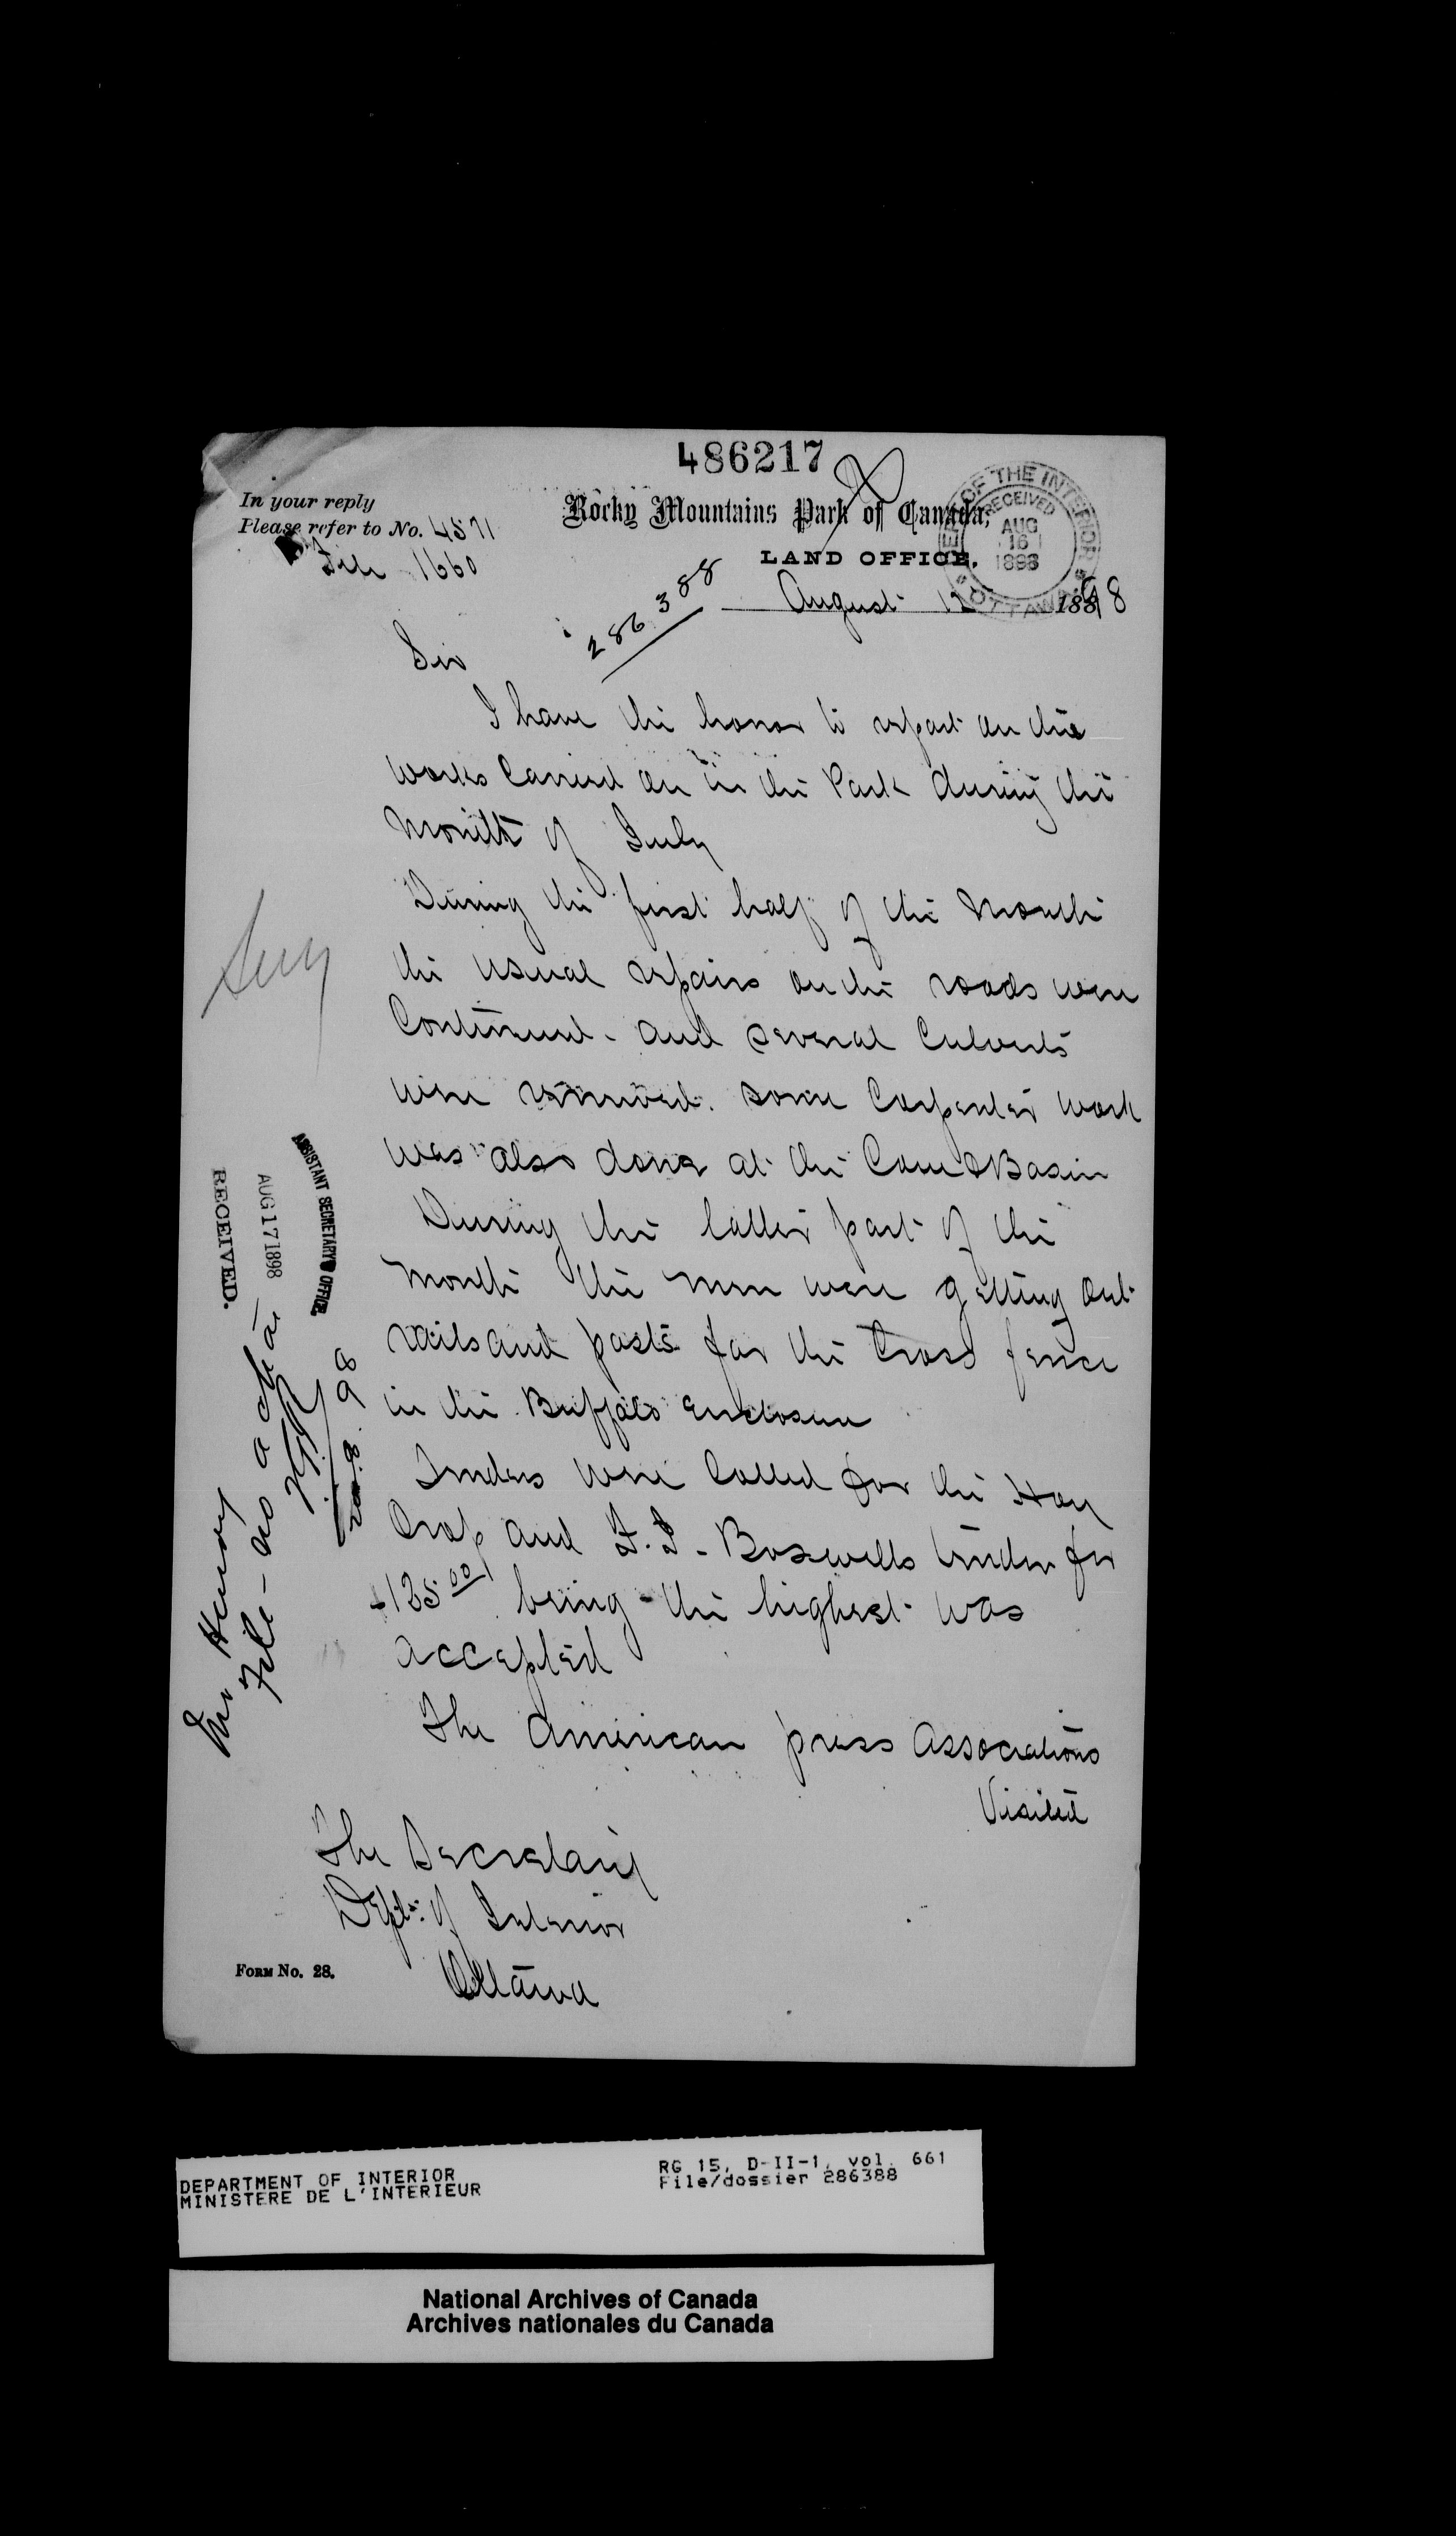 486217
In your reply
Please refer to No. 4571
File 1660
Rocky Mountains Park of Canada,
LAND OFFICE,
DEPT OF THE INTERIOR
RECEIVED
AUG
16
1898
OTTAWA
August 12 1898
286388
Sir
I have the honor to report on the
works carried on in the Park during the
Month of July
During the first half of the Month
the usual repairs on the roads were
Continued. and several Culverts
were renewed. some Carpenter work
was also done at the Cave & Basin
During the latter part of the
Month the men were getting out
rails and posts for the Cross fence
in the Buffalo enclosure
Tenders were Called for the Hay
Crop and Boswells tender for
$135.00 being the highest was
accepted
The American press Associations
Visited
The Secretary
Dept. of Interior
Ottawa
FORM No. 28.
ASSISTANT SECRETARY'S OFFICE.
AUG 17 1898
RECEIVED.
Mr Henry
File -
DEPARTMENT OF INTERIOR
MINISTERE DE L'INTERIEUR
RG 15, D-II-1, vol. 661
File/dossier 286388
National Archives of Canada
Archives nationales du Canada